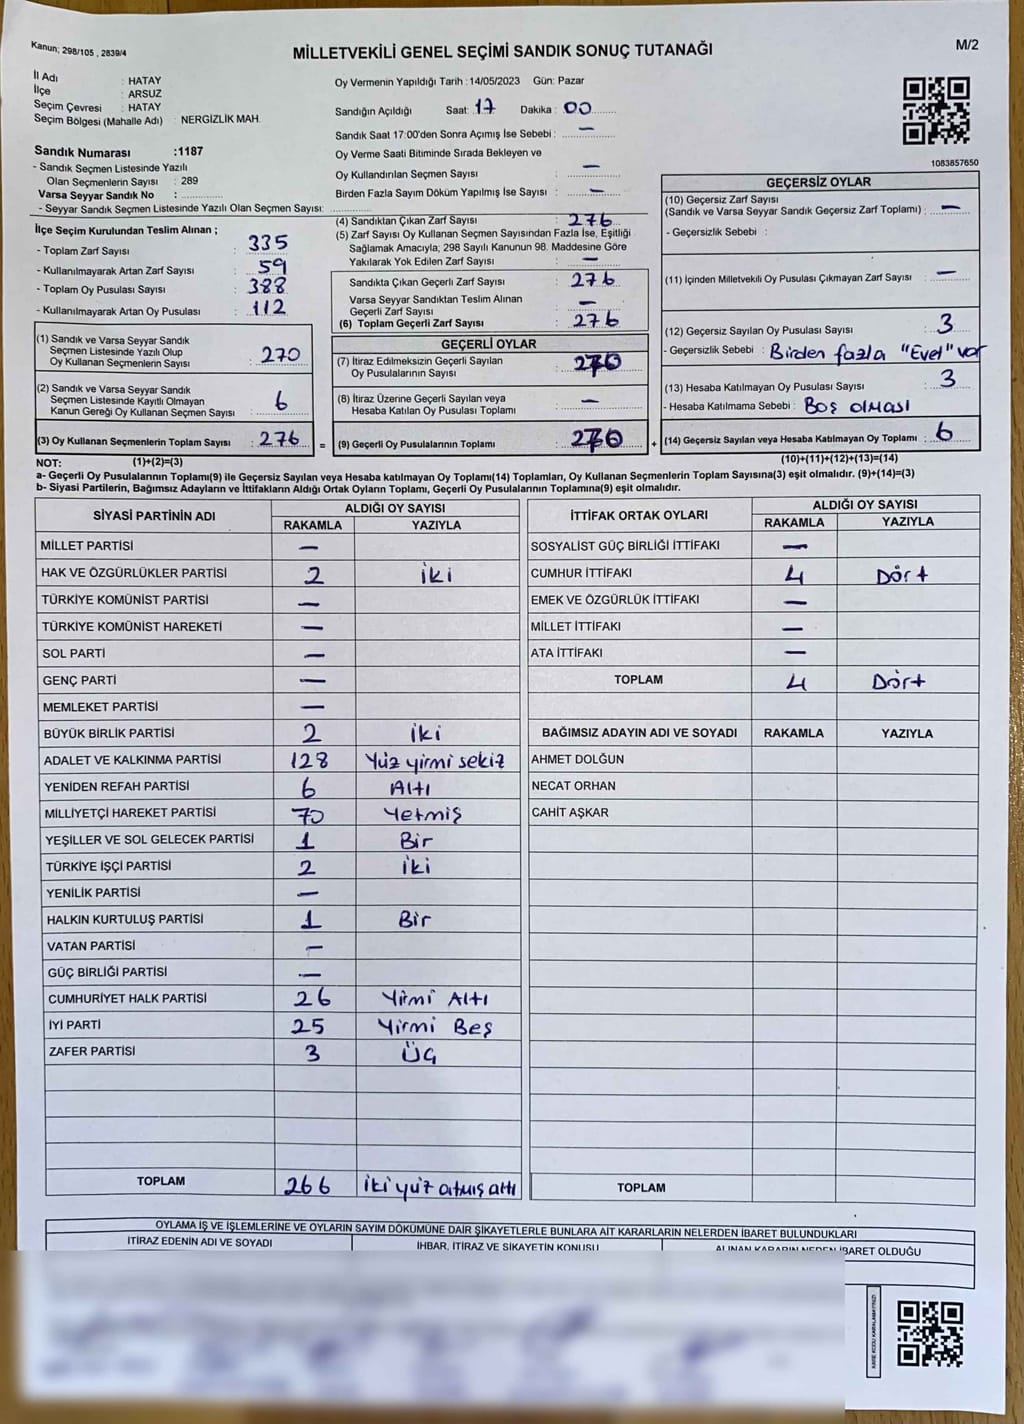 Kanun; 298/105 , 2839/4
MİLLETVEKİLİ GENEL SEÇİMİ SANDIK SONUÇ TUTANAĞI
M/2
İl Adı : HATAY
İlçe : ARSUZ
Seçim Çevresi : HATAY
Seçim Bölgesi (Mahalle Adı) : NERGİZLİK MAH.
Sandık Numarası :1187
- Sandık Seçmen Listesinde Yazılı
Olan Seçmenlerin Sayısı : 289
Varsa Seyyar Sandık No :
- Seyyar Sandık Seçmen Listesinde Yazılı Olan Seçmen Sayısı:
Oy Vermenin Yapıldığı Tarih : 14/05/2023 Gün: Pazar
Sandığın Açıldığı Saat: 17 Dakika : 00
Sandık Saat 17:00'den Sonra Açımış İse Sebebi : —
Oy Verme Saati Bitiminde Sırada Bekleyen ve
Oy Kullandırılan Seçmen Sayısı : —
Birden Fazla Sayım Döküm Yapılmış İse Sayısı : —
1083857650
İlçe Seçim Kurulundan Teslim Alınan ;
- Toplam Zarf Sayısı : 335
- Kullanılmayarak Artan Zarf Sayısı : 59
- Toplam Oy Pusulası Sayısı : 388
- Kullanılmayarak Artan Oy Pusulası : 112
(1) Sandık ve Varsa Seyyar Sandık
Seçmen Listesinde Yazılı Olup
Oy Kullanan Seçmenlerin Sayısı : 270
(2) Sandık ve Varsa Seyyar Sandık
Seçmen Listesinde Kayıtlı Olmayan
Kanun Gereği Oy Kullanan Seçmen Sayısı : 6
(3) Oy Kullanan Seçmenlerin Toplam Sayısı : 276 =
(4) Sandıktan Çıkan Zarf Sayısı : 276
(5) Zarf Sayısı Oy Kullanan Seçmen Sayısından Fazla İse, Eşitliği
Sağlamak Amacıyla; 298 Sayılı Kanunun 98. Maddesine Göre
Yakılarak Yok Edilen Zarf Sayısı : —
Sandıkta Çıkan Geçerli Zarf Sayısı : 276
Varsa Seyyar Sandıktan Teslim Alınan
Geçerli Zarf Sayısı : —
(6) Toplam Geçerli Zarf Sayısı : 276
GEÇERLİ OYLAR
(7) İtiraz Edilmeksizin Geçerli Sayılan
Oy Pusulalarının Sayısı : 270
(8) İtiraz Üzerine Geçerli Sayılan veya
Hesaba Katılan Oy Pusulası Toplamı : —
(9) Geçerli Oy Pusulalarının Toplamı : 270 +
GEÇERSİZ OYLAR
(10) Geçersiz Zarf Sayısı
(Sandık ve Varsa Seyyar Sandık Geçersiz Zarf Toplamı) : —
- Geçersizlik Sebebi :
(11) İçinden Milletvekili Oy Pusulası Çıkmayan Zarf Sayısı : —
(12) Geçersiz Sayılan Oy Pusulası Sayısı : 3
- Geçersizlik Sebebi : Birden fazla "Evet" var
(13) Hesaba Katılmayan Oy Pusulası Sayısı : 3
- Hesaba Katılmama Sebebi : Boş olması
(14) Geçersiz Sayılan veya Hesaba Katılmayan Oy Toplamı : 6
NOT: (1)+(2)=(3)
(10)+(11)+(12)+(13)=(14)
a- Geçerli Oy Pusulalarının Toplamı(9) ile Geçersiz Sayılan veya Hesaba katılmayan Oy Toplamı(14) Toplamları, Oy Kullanan Seçmenlerin Toplam Sayısına(3) eşit olmalıdır. (9)+(14)=(3)
b- Siyasi Partilerin, Bağımsız Adayların ve İttifakların Aldığı Ortak Oyların Toplamı, Geçerli Oy Pusulalarının Toplamına(9) eşit olmalıdır.
SİYASİ PARTİNİN ADI ALDIĞI OY SAYISI
RAKAMLA YAZIYLA
MİLLET PARTİSİ —
HAK VE ÖZGÜRLÜKLER PARTİSİ 2 iki
TÜRKİYE KOMÜNİST PARTİSİ —
TÜRKİYE KOMÜNİST HAREKETİ —
SOL PARTİ —
GENÇ PARTİ —
MEMLEKET PARTİSİ —
BÜYÜK BİRLİK PARTİSİ 2 iki
ADALET VE KALKINMA PARTİSİ 128 Yüz yirmi sekiz
YENİDEN REFAH PARTİSİ 6 Altı
MİLLİYETÇİ HAREKET PARTİSİ 70 Yetmiş
YEŞİLLER VE SOL GELECEK PARTİSİ 1 Bir
TÜRKİYE İŞÇİ PARTİSİ 2 iki
YENİLİK PARTİSİ —
HALKIN KURTULUŞ PARTİSİ 1 Bir
VATAN PARTİSİ —
GÜÇ BİRLİĞİ PARTİSİ —
CUMHURİYET HALK PARTİSİ 26 Yirmi Altı
İYİ PARTİ 25 Yirmi Beş
ZAFER PARTİSİ 3 Üç
TOPLAM 266 iki yüz atmış altı
İTTİFAK ORTAK OYLARI ALDIĞI OY SAYISI
RAKAMLA YAZIYLA
SOSYALİST GÜÇ BİRLİĞİ İTTİFAKI —
CUMHUR İTTİFAKI 4 Dört
EMEK VE ÖZGÜRLÜK İTTİFAKI —
MİLLET İTTİFAKI —
ATA İTTİFAKI —
TOPLAM 4 Dört
BAĞIMSIZ ADAYIN ADI VE SOYADI RAKAMLA YAZIYLA
AHMET DOLĞUN
NECAT ORHAN
CAHİT AŞKAR
TOPLAM
OYLAMA İŞ VE İŞLEMLERİNE VE OYLARIN SAYIM DÖKÜMÜNE DAİR ŞİKAYETLERLE BUNLARA AİT KARARLARIN NELERDEN İBARET BULUNDUKLARI
İTİRAZ EDENİN ADI VE SOYADI İHBAR, İTİRAZ VE ŞİKAYETİN KONUSU ALINAN KARARIN NEDEN İBARET OLDUĞU
KARE KODU KARALAMAYINIZ!